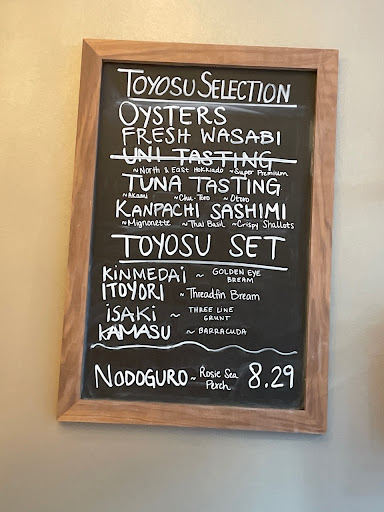 TOYOSU SELECTION
OYSTERS
FRESH WASABI
UNI TASTING
~ North & East Hokkaido ~ Super Premium
TUNA TASTING
~ Akami ~ Chu-Toro ~ Otoro
KANPACHI SASHIMI
~ Mignonette ~ Thai Basil ~ Crispy Shallots
TOYOSU SET
KINMEDAI ~ GOLDEN EYE
BREAM
ITOYORI ~ Threadfin Bream
ISAKI ~ THREE LINE
GRUNT
KAMASU ~ BARRACUDA
NODOGURO ~ Rosie Sea
Perch 8.29